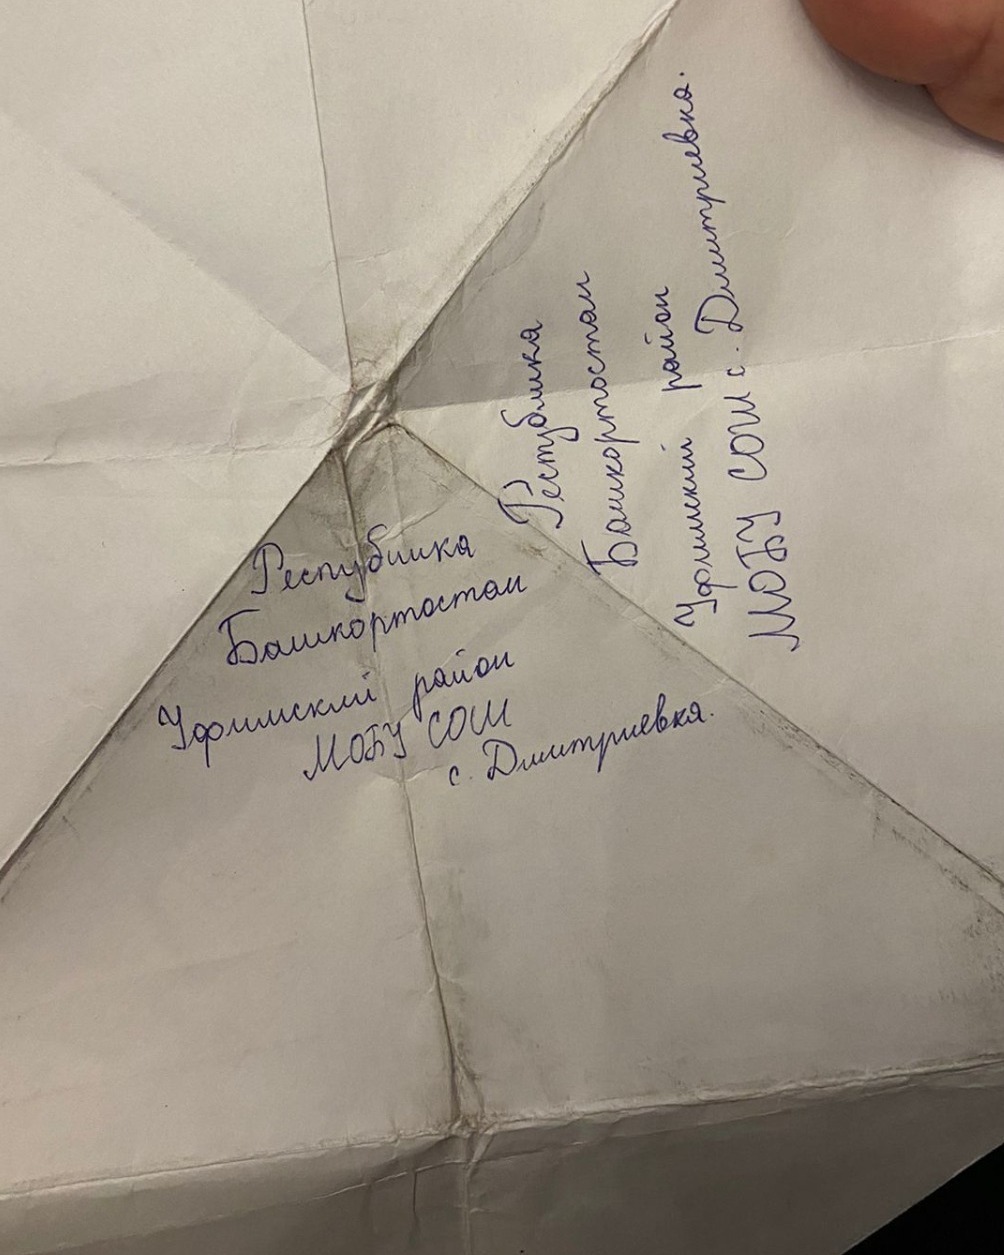 Республика
Башкортостан
Уфимский район
МОБУ СОШ
с. Дмитриевка.
Республика
Башкортостан
Уфимский район
МОБУ СОШ с. Дмитриевка.